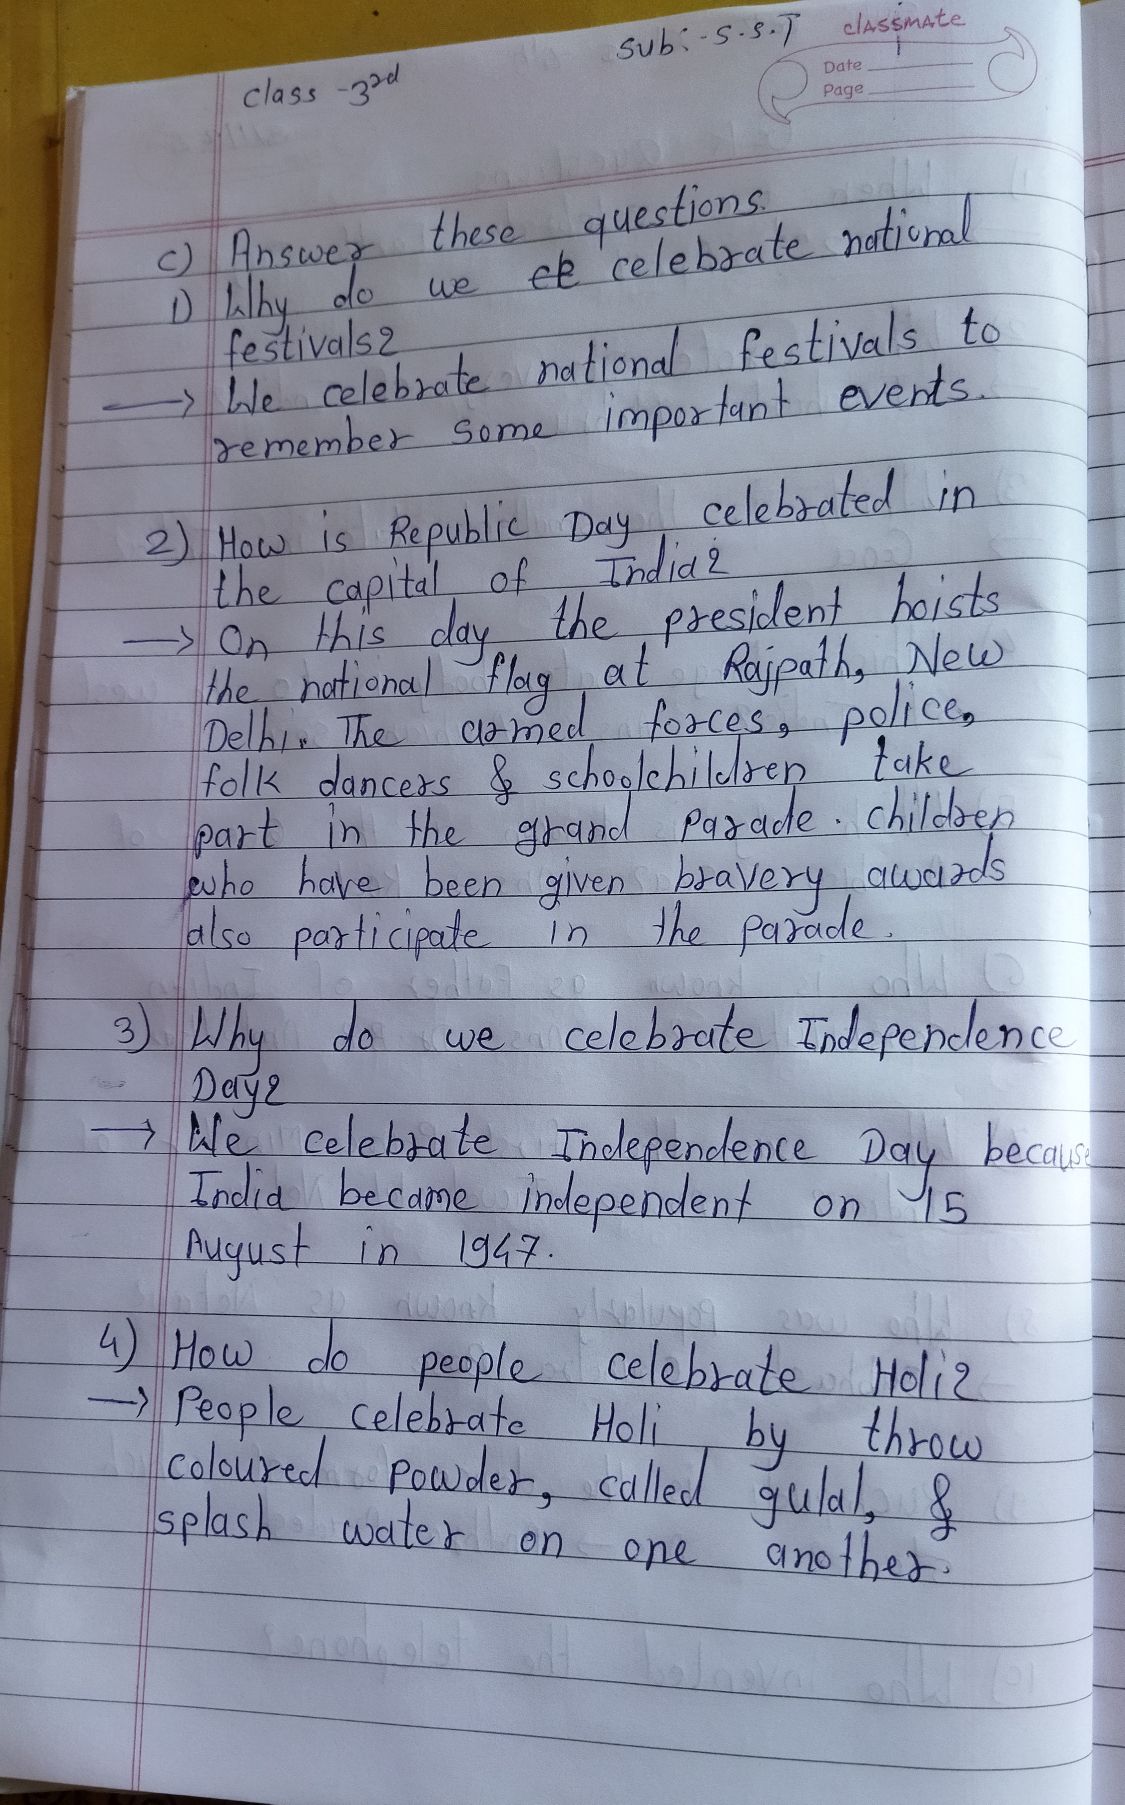 Class - 3rd
Sub:- S.S.T
classmate
Date
Page
C) Answer these questions.
1) Why do we celebrate national
festivals?
→ We celebrate national festivals to
remember some important events.
2) How is Republic Day celebrated in
the capital of India?
→ On this day the president hoists
the national flag at Rajpath, New
Delhi. The armed forces, police,
folk dancers & schoolchildren take
part in the grand Parade. children
who have been given bravery awards
also participate in the parade.
3) Why do we celebrate Independence
Day?
→ We celebrate Independence Day because
India became independent on 15
August in 1947.
4) How do people celebrate Holi?
→ People celebrate Holi by throw
coloured powder, called gulal, &
splash water on one another.